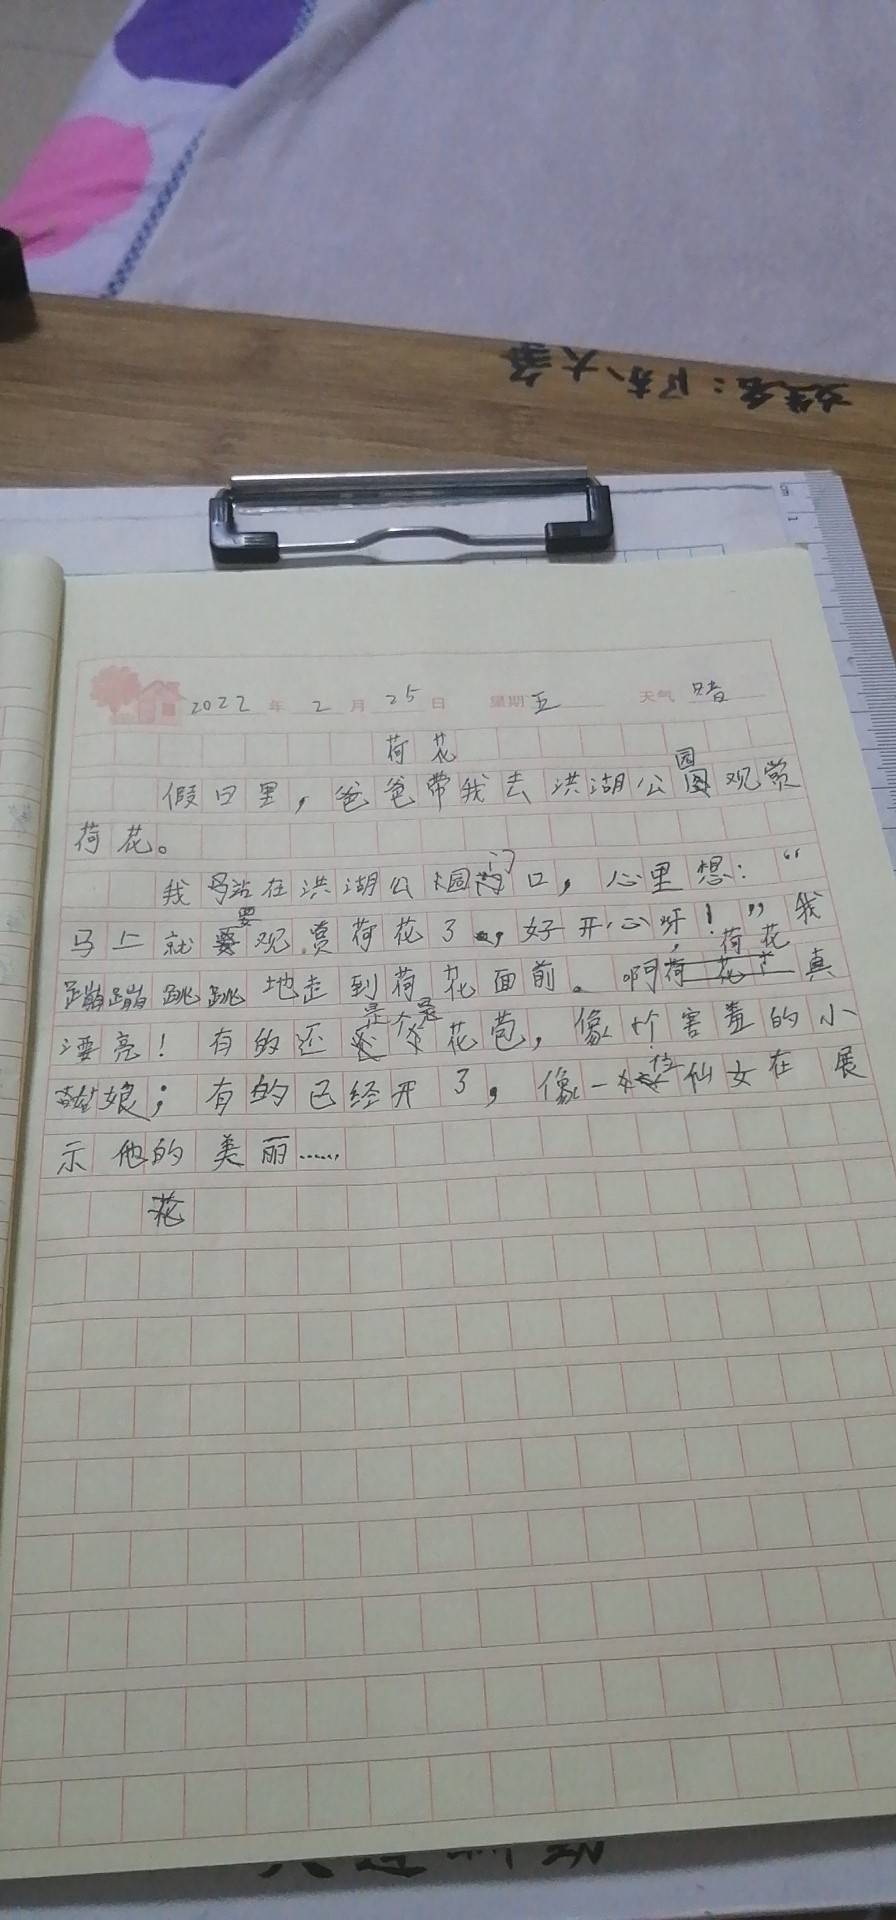 2022年 2月 25日 星期五 天气 晴
荷花
假日里，爸爸带我去洪湖公园观赏
荷花。
我站在洪湖公园门口，心里想：“
马上就要观赏荷花了，好开心呀！”我
蹦蹦跳跳地走到荷花面前。啊，荷花真
漂亮！有的还是个花苞，像个害羞的小
姑娘；有的已经开了，像一位仙女在展
示他的美丽……